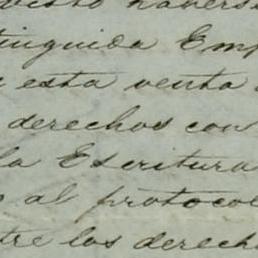 visto haverse
tinguida Emp
esta venta
derechos con
la Escritura
al protocol
tre los derech